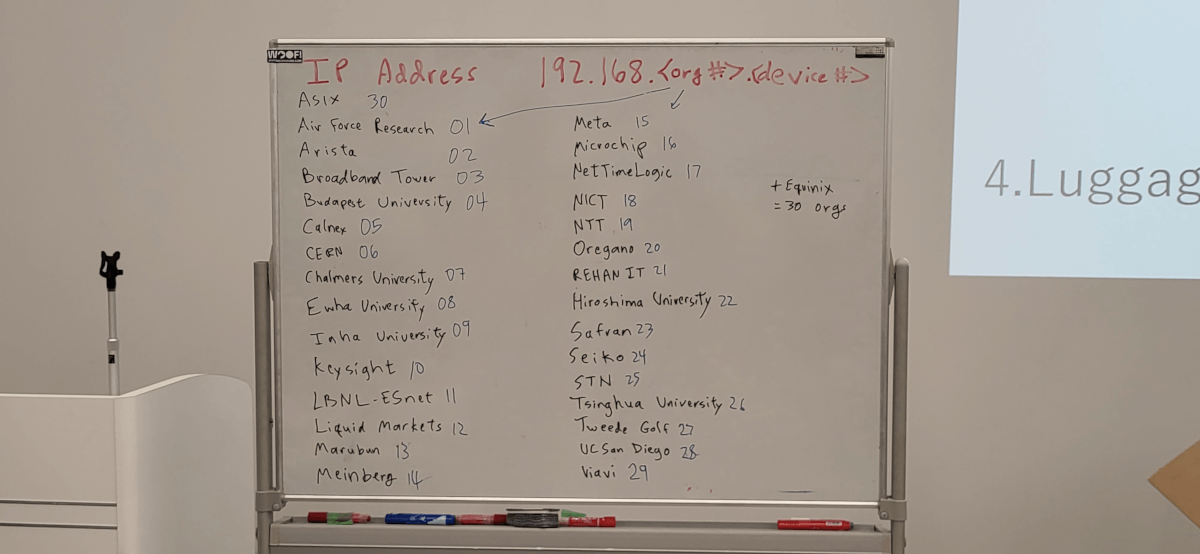 WOOF!
IP Address 192.168.<org #>.<device #>
Asix 30
Air Force Research 01
Arista 02
Broadband Tower 03
Budapest University 04
Calnex 05
CERN 06
Chalmers University 07
Ewha University 08
Inha University 09
Keysight 10
LBNL-ESnet 11
Liquid Markets 12
Marubun 13
Meinberg 14
Meta 15
Microchip 16
NetTimeLogic 17
NICT 18
NTT 19
Oregano 20
REHAN IT 21
Hiroshima University 22
Safran 23
Seiko 24
STN 25
Tsinghua University 26
Tweede Golf 27
UC San Diego 28
Viavi 29
+ Equinix
= 30 orgs
4.Luggag